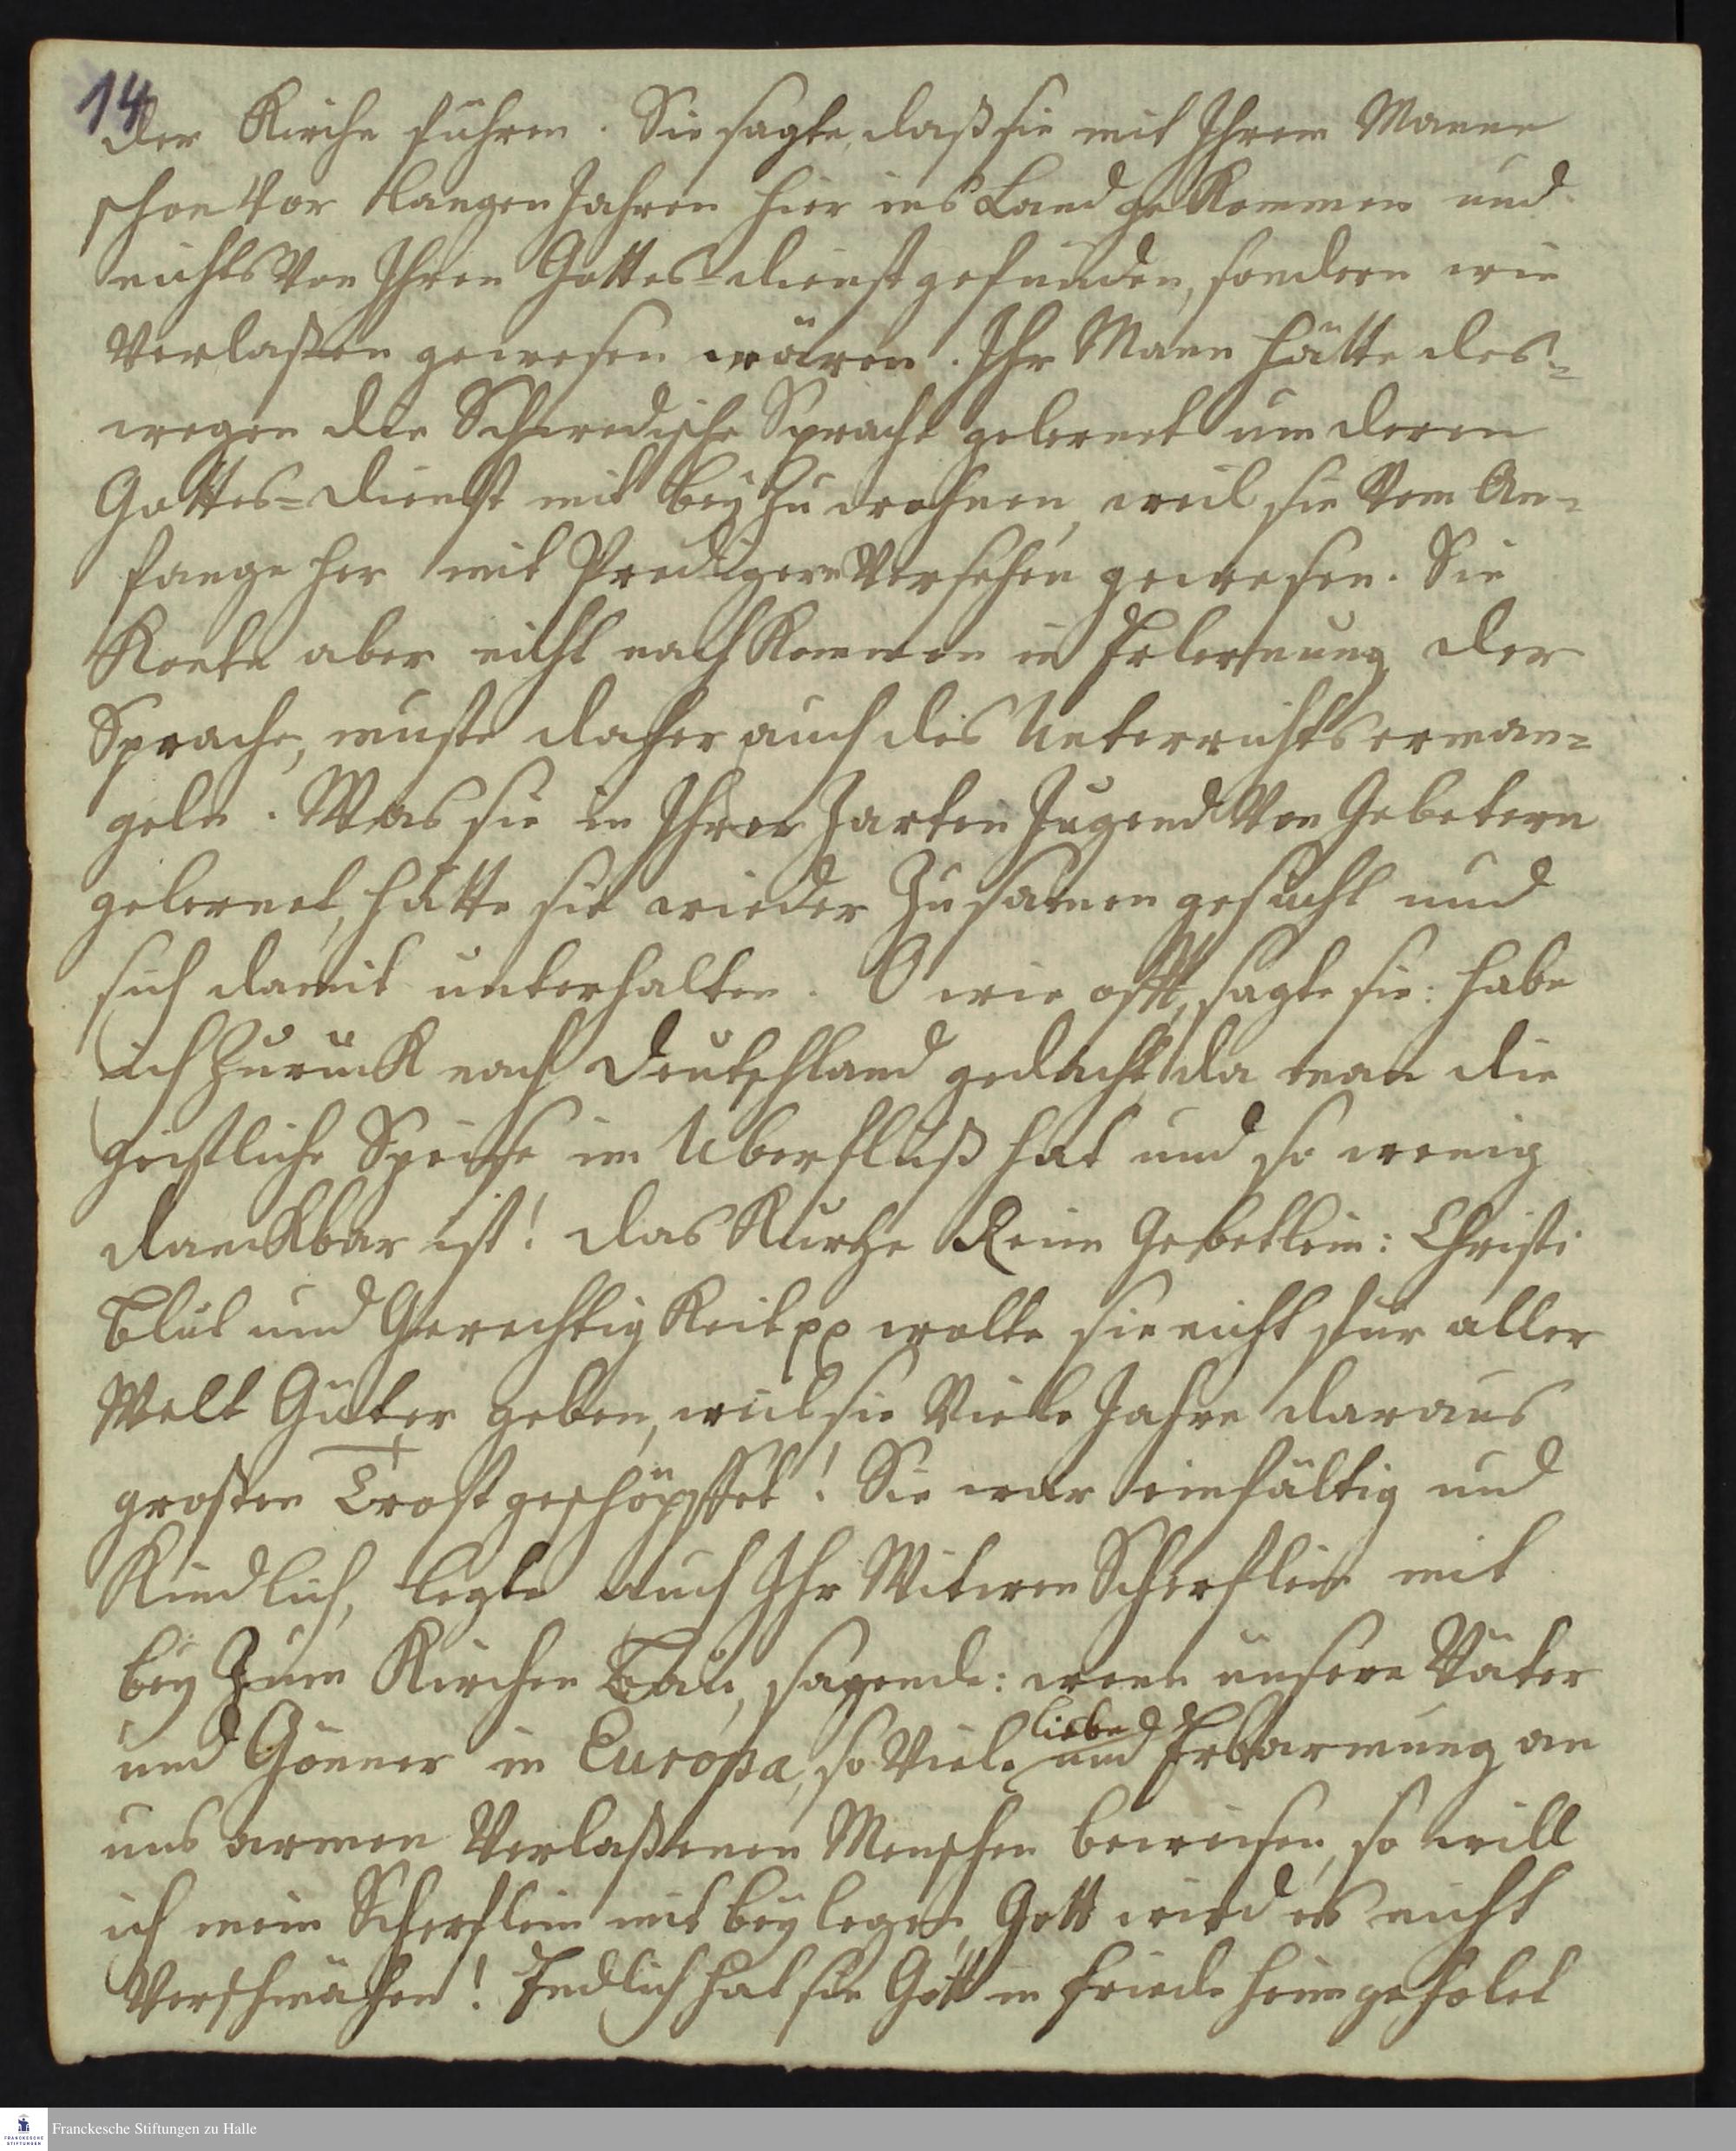 14
der Kirche führen. Sie sagte, daß sie mit Ihrem Manne
schon vor langen Jahren hier ins Land gekommen und
nichts von Ihren Gottes-dienst gefunden, sondern wie
verlaßen gewesen wären. Ihr Mann hätte des=
wegen die Schwedische Sprache gelernet um deren
Gottes=dienst mit beyzuwohnen, weil sie vom An=
fange her mit Predigern versehen gewesen. Sie
konte aber nicht nachkommen in Erlernung der
Sprache, muste daher auch des Unterrichts erman=
geln. Was sie in Ihrer zarten Jugend von Gebetern
gelernet, hätte sie wieder zusamen gesucht und
sich damit unterhalten. O wie offt, sagte sie: habe
ich zurück nach Deutschland gedacht, da man die
geistliche Speise im Uberfluß hat und so wenig
danckbar ist! Das kurtze Reim Gebetlein: Christi
Blut und Gerechtigkeit pp wolte sie nicht für aller
Welt Güter geben, weil sie viele Jahre daraus
großen Trost geschöpffet! Sie war einfältig und
kindlich, legte auch Ihr Witwen Scherflein mit
bey zum Kirchen Bau, sagende: wenn unsere Väter
und Gönner in Europa, so viele liebe und Erbarmung an
uns armen verlaßenen Menschen beweisen, so will
ich mein Scherflein mit beylegen, Gott wird es nicht
verschmähen! Endlich hat sie Gott in Friede heimgeholet
Franckesche Stiftungen zu Halle
FRANCKESCHE
STIFTUNGEN